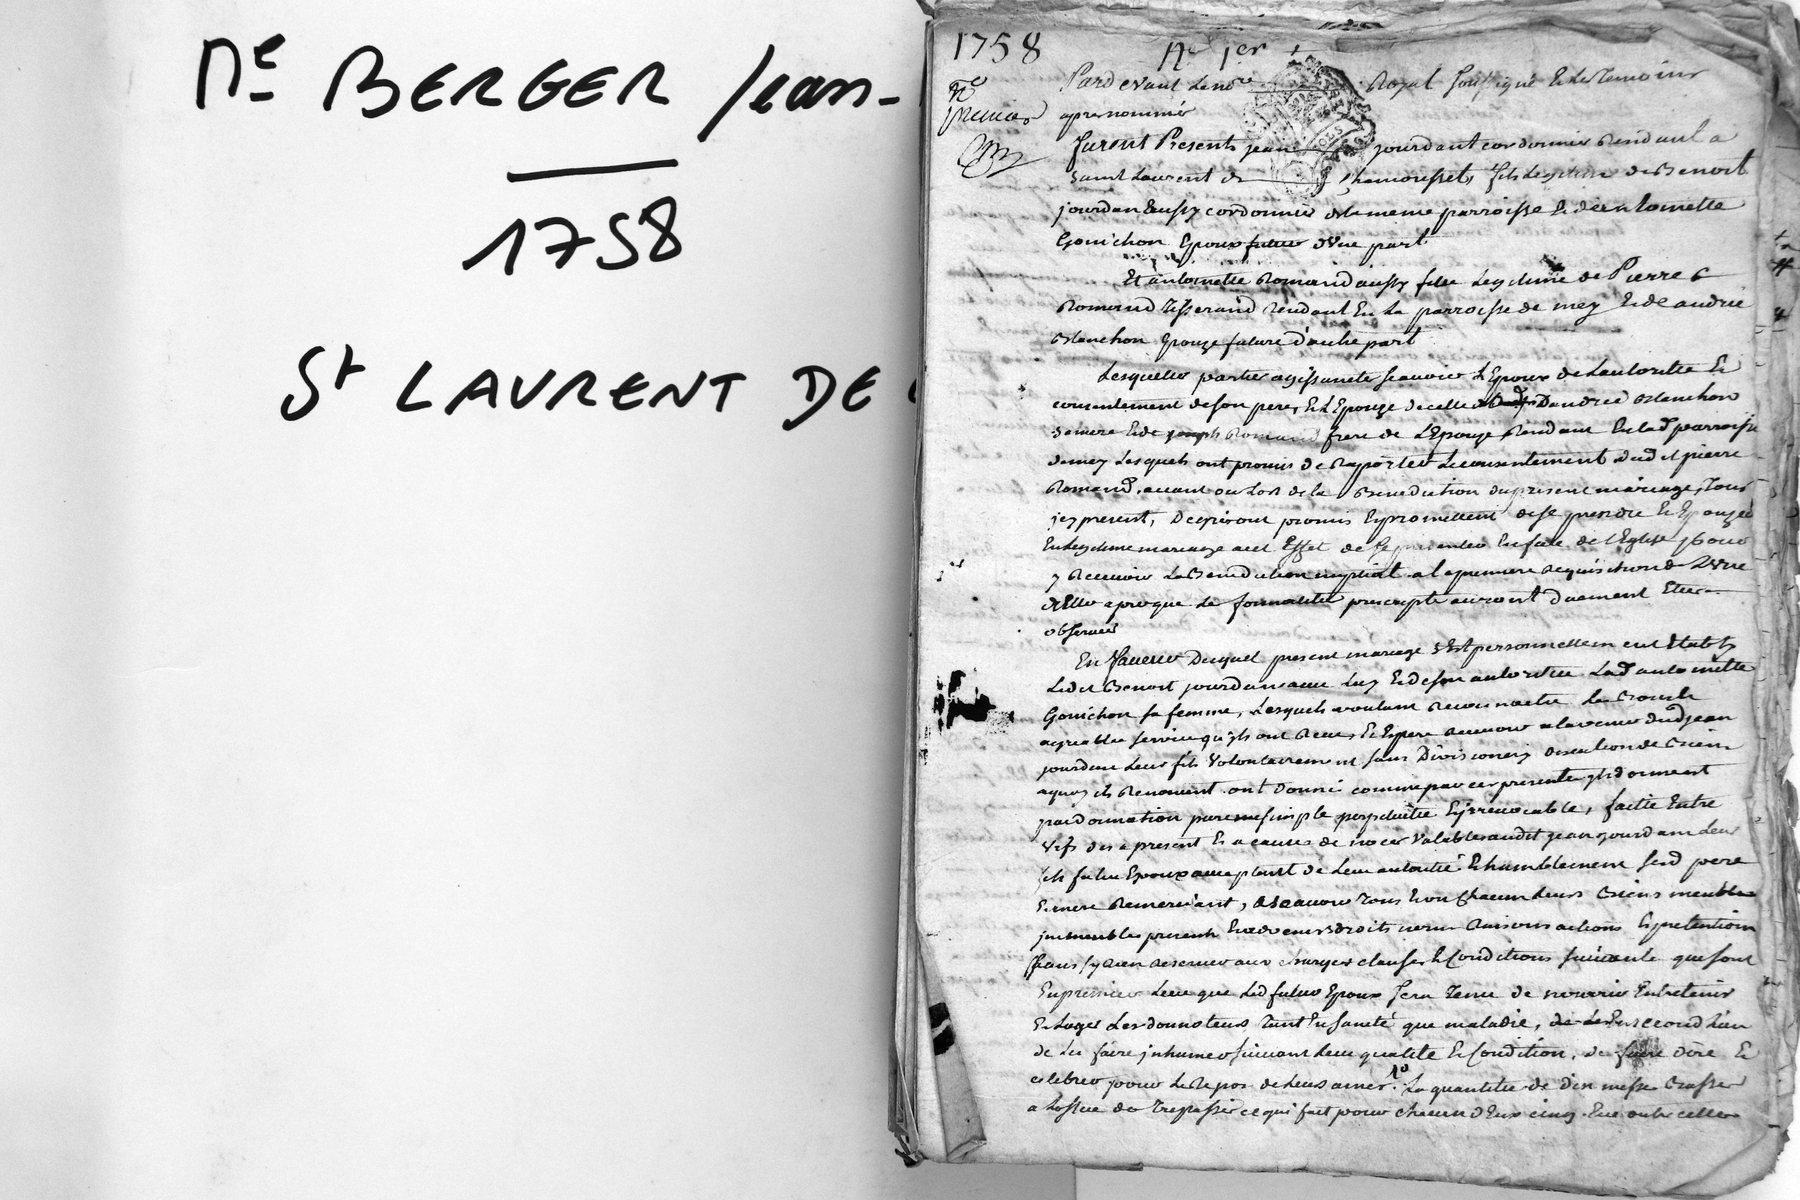 Me BERGER Jean-
1758
St LAURENT DE
1758
N° 1er
Pardevant le nore Royal soussigné et les temoins
nº premier
apres nommés
furent Presents jean jourdant cordonnier residant a
saint Laurent de Chamousset, fils legitime de Benoit
jourdan aussy cordonnier de la meme parroisse et de antoinette
Gonichon Epoux futur d'Une part
Et antoinette Romand aussy fille Legitime de Pierre
Romand Tisserand Residant En La parroisse de mey Et de andrée
Blanchon Epouze future d'autre part
Lesquelles parties agissants sçavoir L'Epoux de L'autorité Et
consentement de son pere, Et L'Epouze de celle D'andrée Blanchon
sa mere Et de joseph Romand frere de L'Epouze Residant En lad parroisse
de mey Lesquels ont promis de Raporter Le consentement dudit pierre
Romand, avant ou Lors de la Benediction du present mariage, Tous
jcy present, De gré ont promis Et promettent de se prendre Et Epouzer
En Legitime mariage a cet Effet de se presenter En face de l'Eglise pour
y Recevoir La Benediction nuptial a la premiere Requisition de L'Une
d'Elles apres que les formalités prescriptes auront duement Eté
observées
En faveur Duquel present mariage s'Est personnellement Etably
Ledit Benoit jourdan avec Luy Et de son autorité Lad antoinette
Gonichon sa femme, Lesquels voulant Reconnoitre Les Bons Et
agreables services qu'ils ont Receus Et Espere Recevoir a l'avenir dud jean
jourdan Leur fils Volontairement sans Division ny discution de Biens
a quoy ils Renoncent ont donné comme par ces presentes ils donnent
par donnation pure Et simple perpetuelle Et jrrevocable, faitte Entre
Vifs des a present Et a causes de noces Valables audit jean jourdan Leur
fils futur Epoux acceptant de Leur autorité Et humblement sesd pere
Et mere Remerciant, a scavoir Tous Et un Chacun Leurs Biens meubles
jmmeubles presents Et advenirs droits noms Raisons actions Et pretentions
sans s'y Rien Reserver aux charges clauses Et Conditions suivante que sont
Expressées Leur que Led futur Epoux sera Tenu de nourrir Entretenir
Et Loger Les donnateurs Tant En santé que maladie,
de Les faire jnhumer suivant Leur qualité Et Condition, de faire dire Et
celebrer pour Le Repos de Leurs ames La quantité de dix messes Basses
a L'office des Trepassés ce qui fait pour chacun d'Eux cinq. Et outre celles